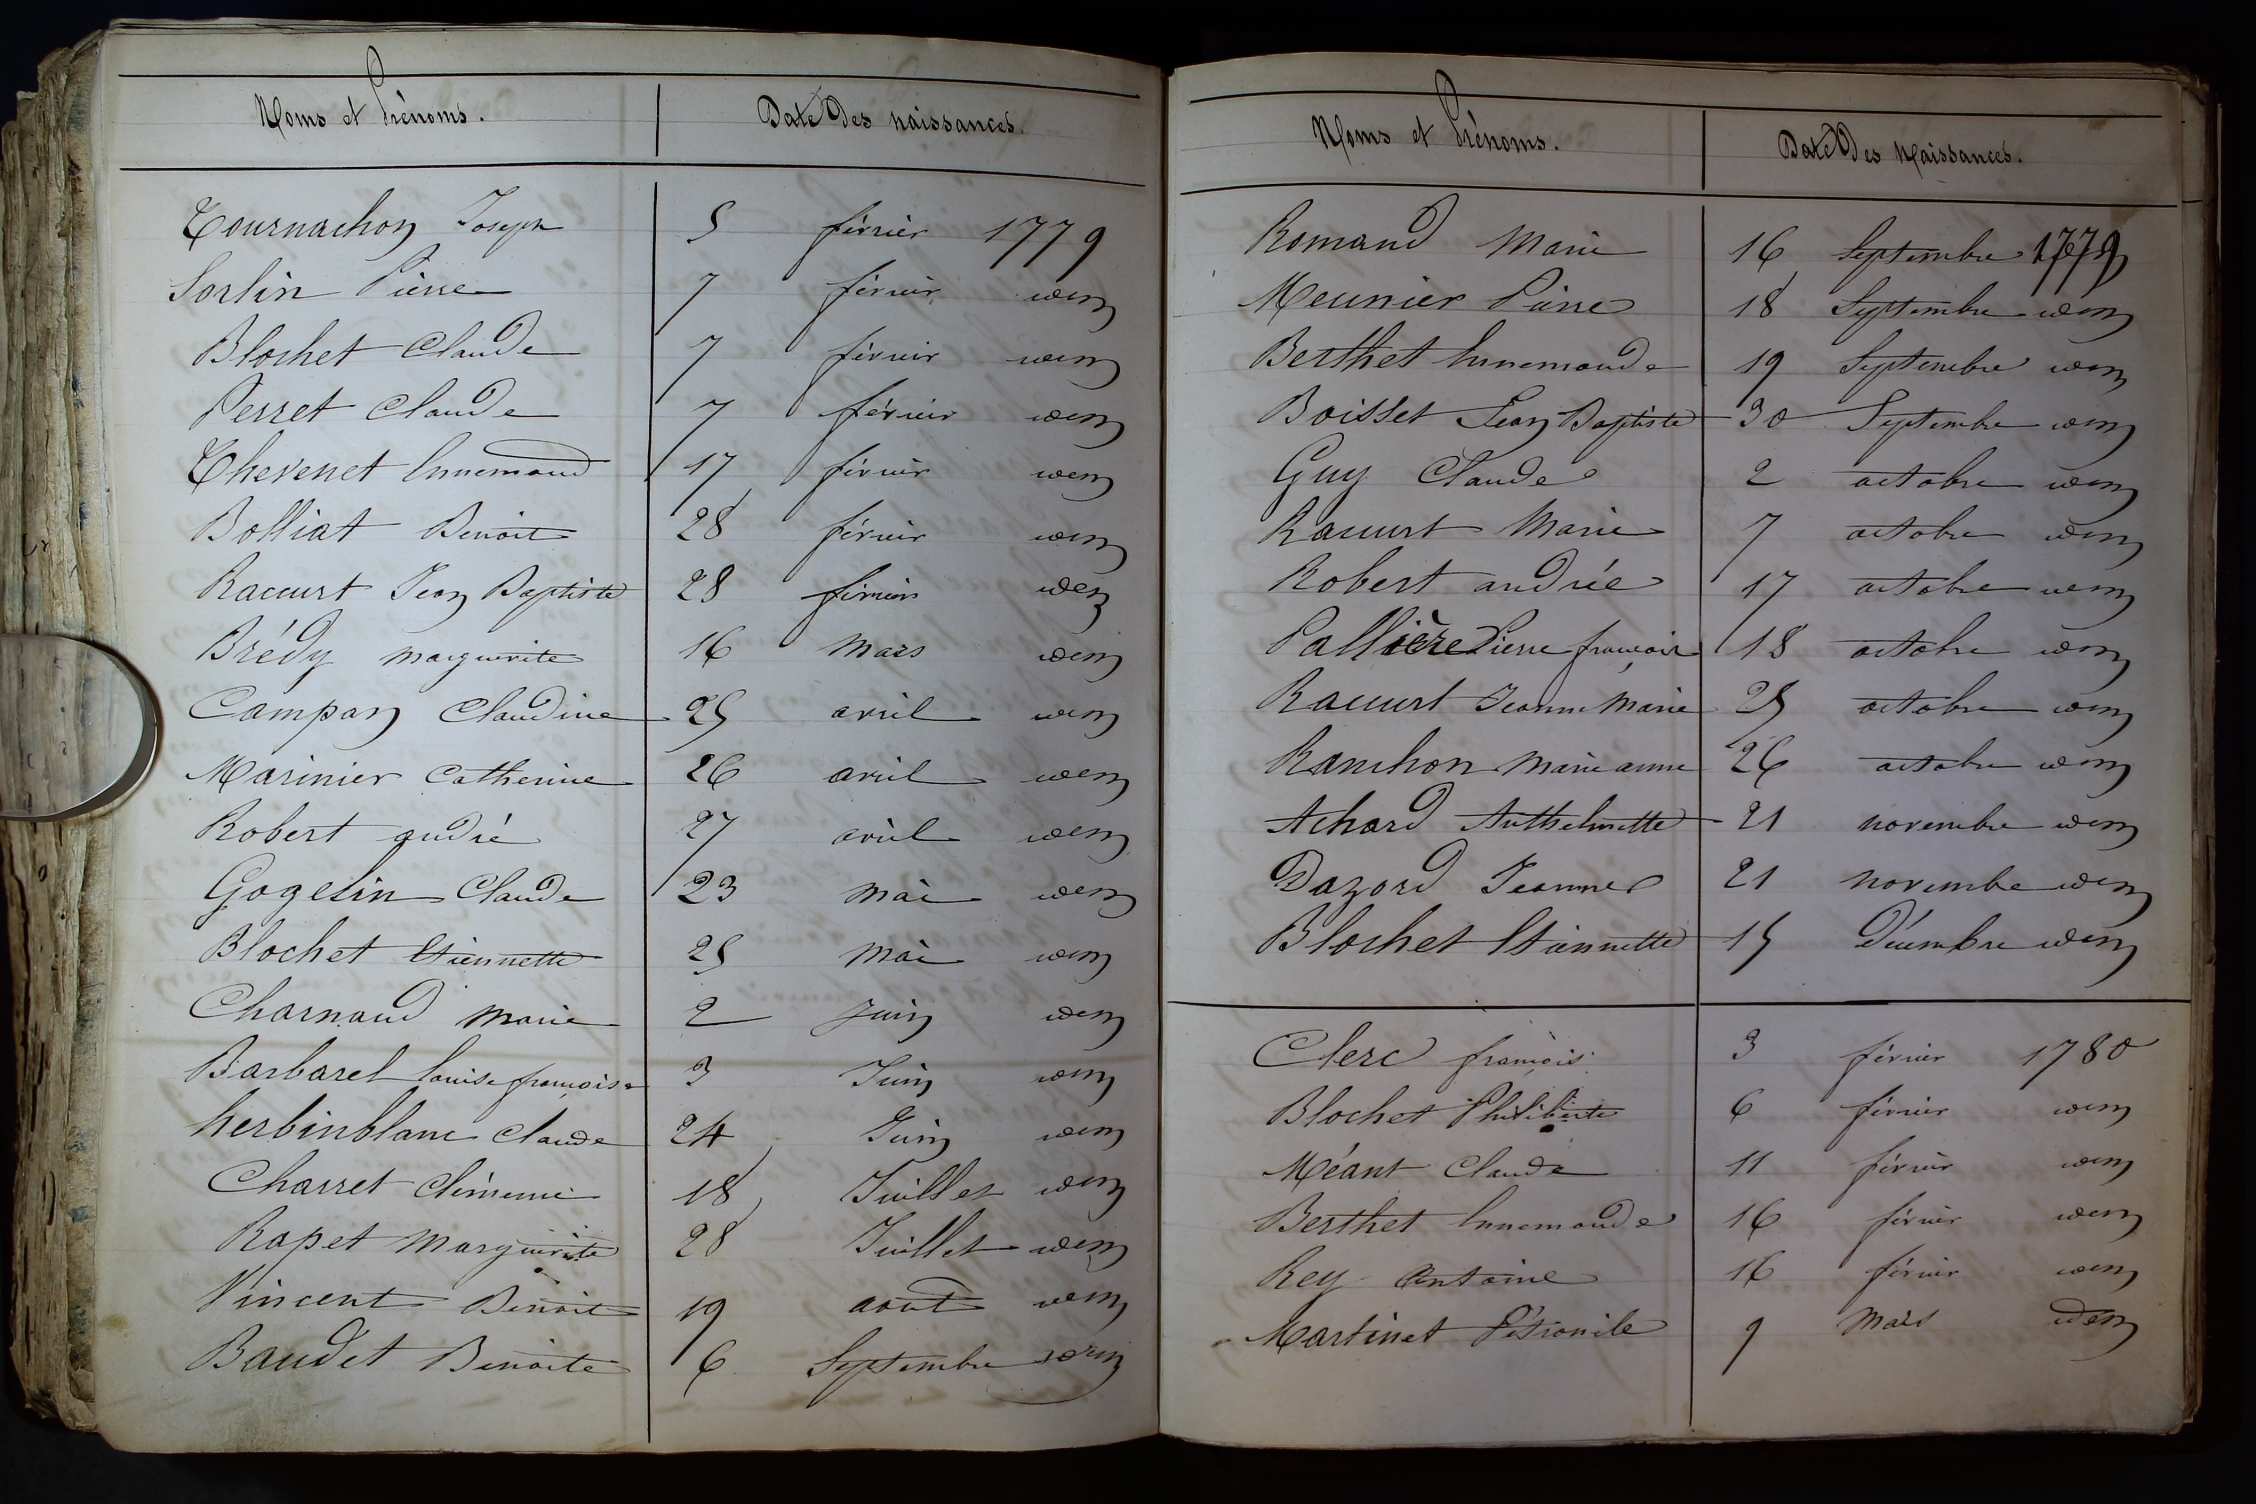 Noms et Prénoms. Date Des naissances.
Tournachon Joseph 5 février 1779
Sorlin Pierre 7 février idem
Blochet Claude 7 février idem
Perret Claude 7 février idem
Thevenet Ennemond 17 février idem
Bolliat Benoit 28 février idem
Raccurt Jean Baptiste 28 février idem
Brédy marguerite 16 mars idem
Campan Claudine 25 avril idem
Marinier Catherine 26 avril idem
Robert andré 27 avril idem
Gogelin Claude 23 mai idem
Blochet Etiennette 25 mai idem
Charnaud marie 2 Juin idem
Barbarel louise françoise 3 Juin idem
herbinblanc Claude 24 Juin idem
Charret Clémence 18 Juillet idem
Rapet marguerite 28 Juillet idem
Vincent Benoit 19 aout idem
Baudet Benoite 6 Septembre idem
Noms et Prénoms. Date Des Naissances.
Romand Marie 16 Septembre 1779
Meunier Pierre 18 Septembre idem
Berthet Ennemonde 19 Septembre idem
Boisset Jean Baptiste 30 Septembre idem
Guy Claude 2 octobre idem
Raccurt Marie 7 octobre idem
Robert andrée 17 octobre idem
Pallière Pierre françois 18 octobre idem
Raccurt Jeanne Marie 25 octobre idem
Ranchon Marie anne 26 octobre idem
Achard Anthelmette 21 novembre idem
Dazord Jeanne 21 novembre idem
Blochet Etiennette 15 Décembre idem
Clerc françois 3 février 1780
Blochet Philiberte 6 février idem
Méant Claude 11 février idem
Berthet Ennemonde 16 février idem
Rey Antoine 16 février idem
Martinet Pétronile 9 mars idem